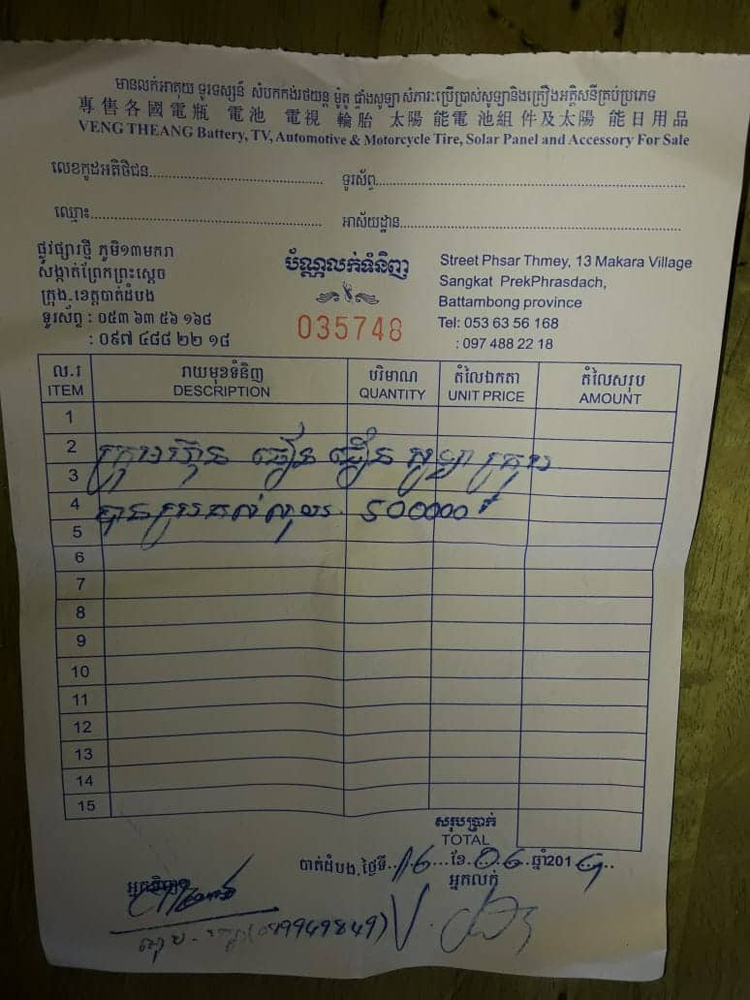 មានលក់អាគុយ ទូរទស្សន៍ សំបកកង់រថយន្ត ម៉ូតូ ផ្ទាំងសូឡា សំភារៈប្រើប្រាស់សូឡានិងគ្រឿងអគ្គិសនីគ្រប់ប្រភេទ
專售各國電瓶 電池 電視 輪胎 太陽 能電 池組 件及太陽 能日用品
VENG THEANG Battery, TV, Automotive & Motorcycle Tire, Solar Panel and Accessory For Sale
លេខកូដអតិថិជន ទូរស័ព្ទ
ឈ្មោះ អាស័យដ្ឋាន
ផ្លូវផ្សារថ្មី ភូមិ១៣មករា
សង្កាត់ព្រែកព្រះស្ដេច
ក្រុង.ខេត្តបាត់ដំបង
ទូរស័ព្ទ : ០៥៣ ៦៣ ៥៦ ១៦៨
: ០៩៧ ៤៨៨ ២២ ១៨
ប័ណ្ណលក់ទំនិញ
035748
Street Phsar Thmey, 13 Makara Village
Sangkat PrekPhrasdach,
Battambong province
Tel: 053 63 56 168
: 097 488 22 18
ល.រ រាយមុខទំនិញ បរិមាណ តំលៃឯកតា តំលៃសរុប
ITEM DESCRIPTION QUANTITY UNIT PRICE AMOUNT
1
2
ក្រុមហ៊ុន សូឡា
3
4
បានប្រគល់លុយ
5
6
7
8
9
10
11
12
13
14
15
សរុបប្រាក់
TOTAL
បាត់ដំបង.ថ្ងៃទី 16 ខែ 06 ឆ្នាំ201
អ្នកទិញ អ្នកលក់